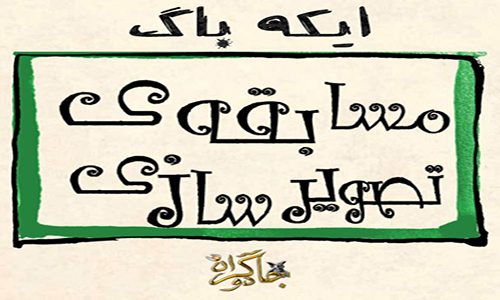 ایکه باگ
مسابقه‌ی
تصویر سازی
جادوگران